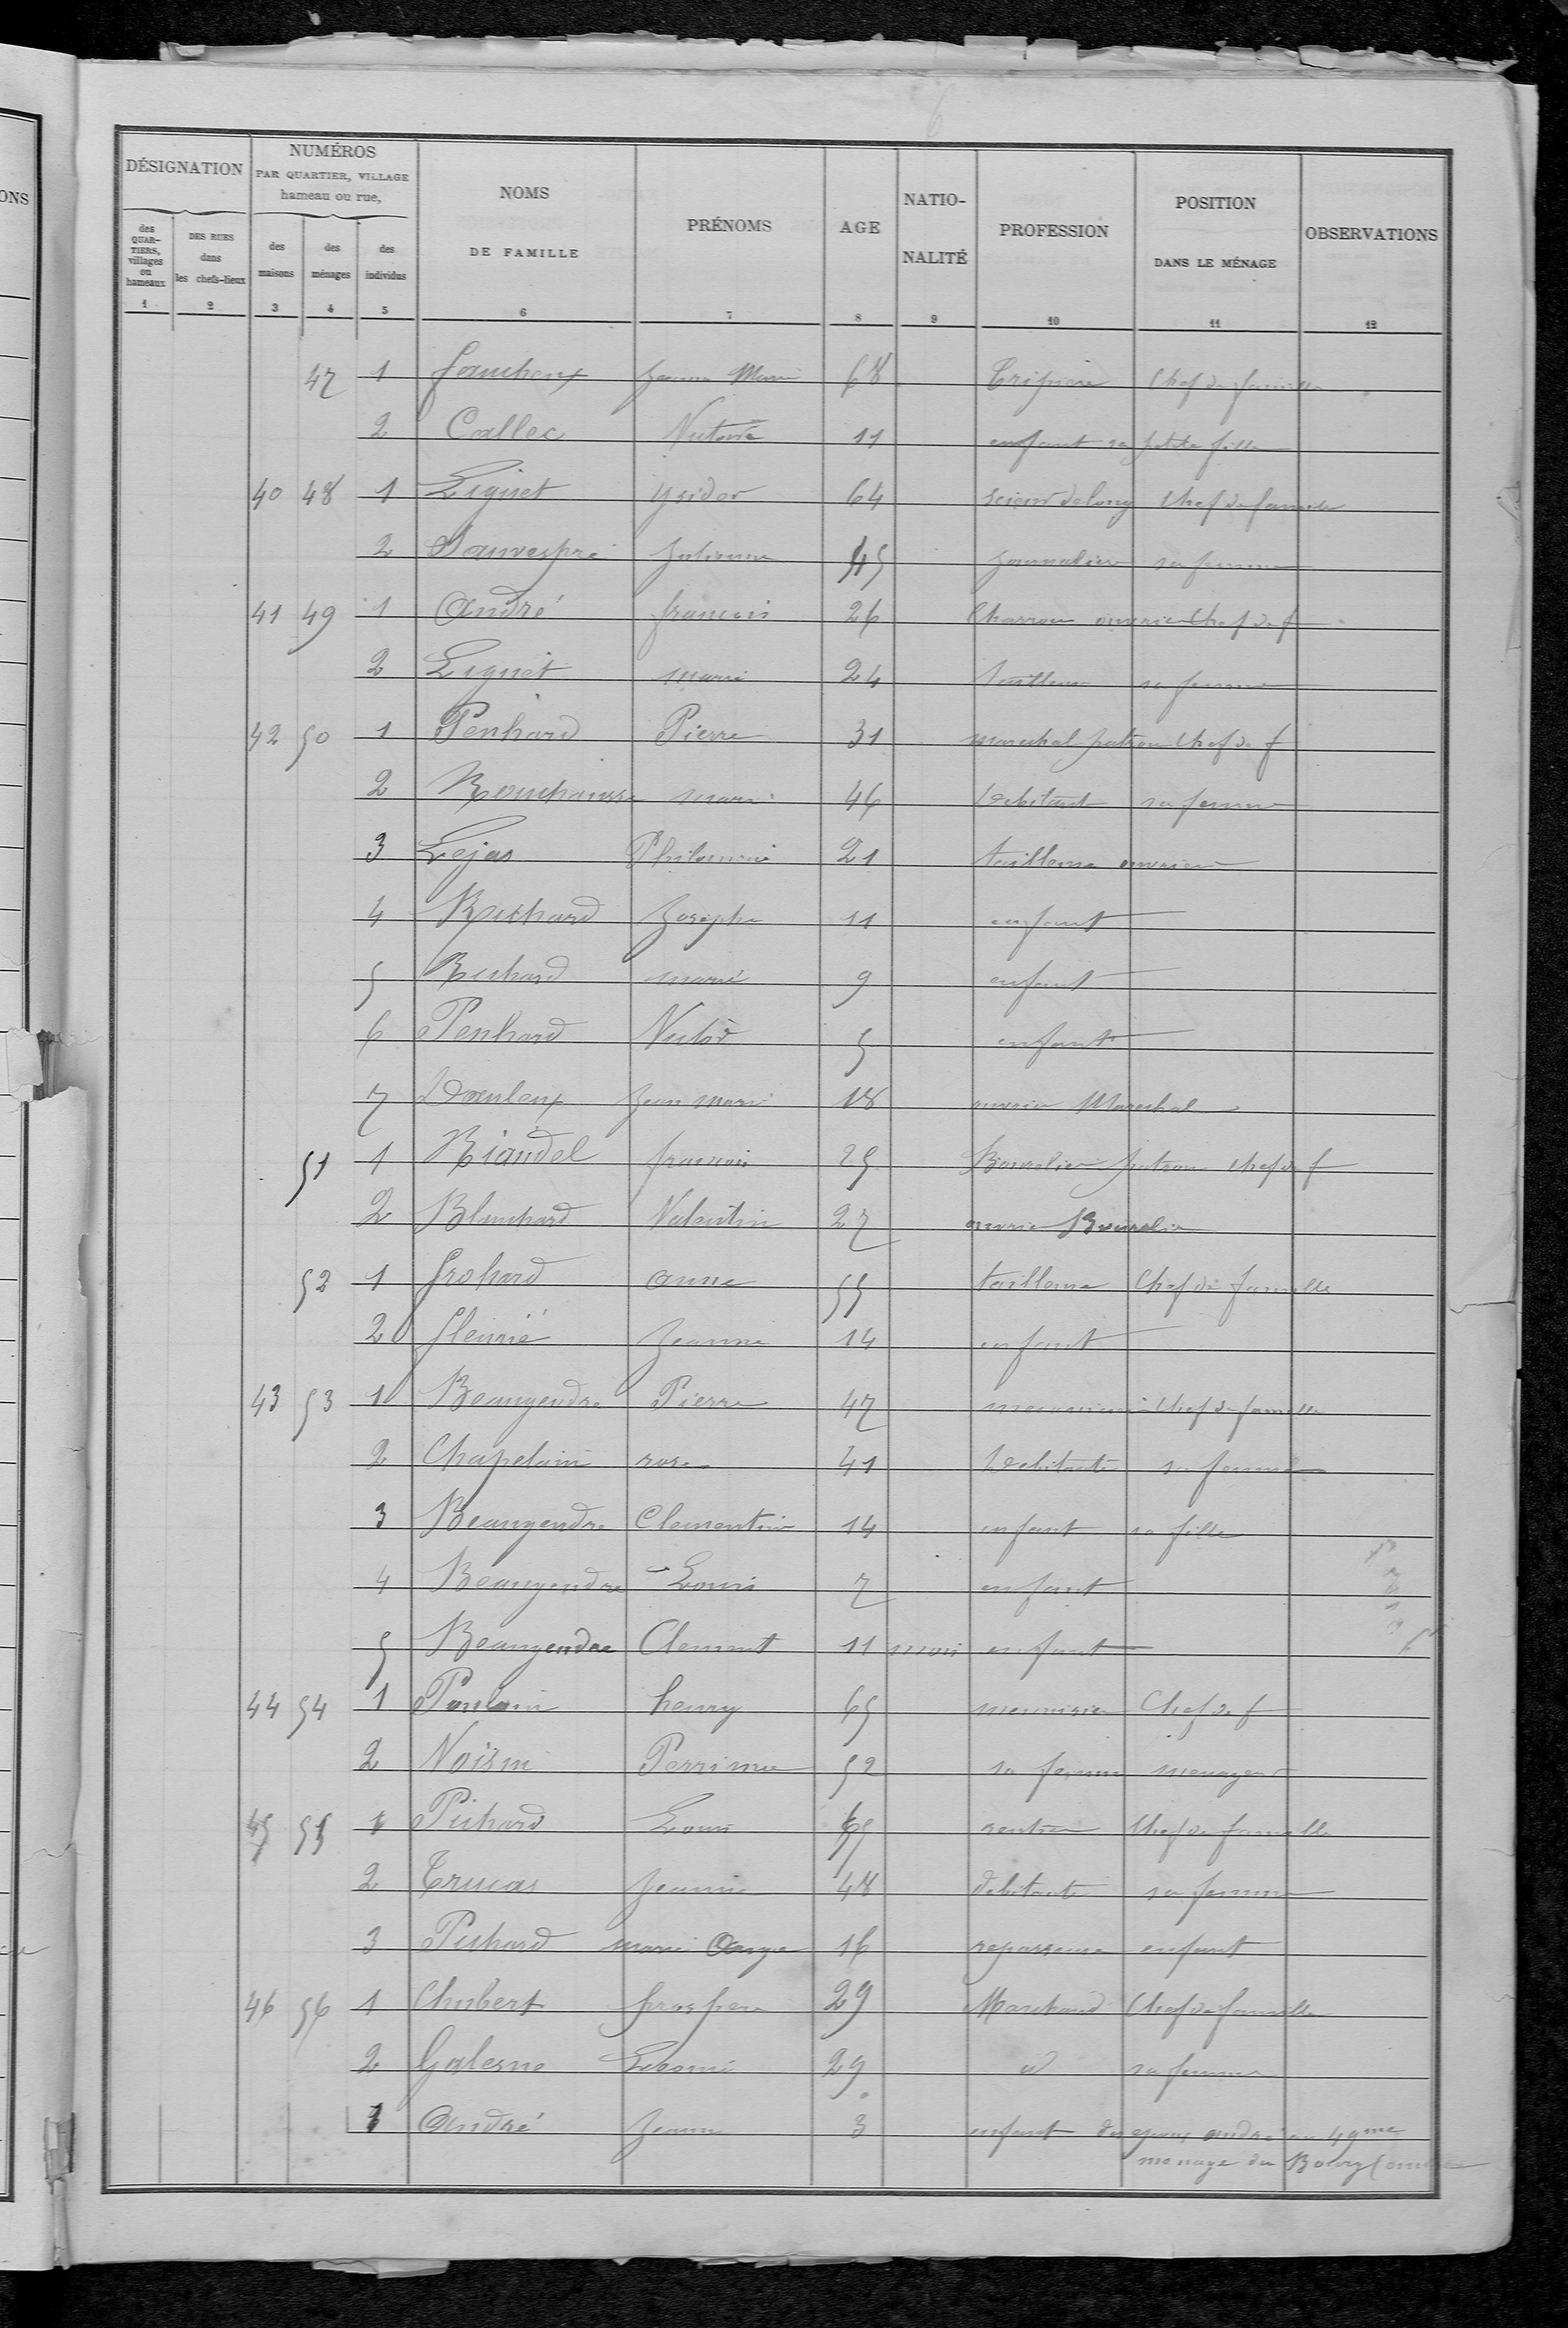 6
DÉSIGNATION NUMÉROS PAR QUARTIER, VILLAGE hameau ou rue, NOMS DE FAMILLE PRÉNOMS AGE NATIO-NALITÉ PROFESSION POSITION DANS LE MÉNAGE OBSERVATIONS
des QUAR-TIERS, villages ou hameaux DES RUES dans les chefs-lieux des maisons des ménages des individus
1 2 3 4 5 6 7 8 9 10 11 12
47 1 Jeanne Marie 68 Tripière Chef de famille
2 Callec 11 enfant sa petite fille
40 48 1 Liguet ysidor 64 scieur de long Chef de famille
2 Sauvespré Julienne 45 journalière sa femme
41 49 1 André francois 26 Charron ouvrier Chef de f
2 Liguet marie 24 sa femme
42 50 1 Penhard Pierre 31 marechal patron Chef de f
2 marie 46 Debitant sa femme
3 Lejas Philomene 21 tailleuse ouvriere
4 Richard Joseph 11 enfant
5 Richard marie 9 enfant
6 Penhard Victor 5 enfant
7 Jean marie 18 ouvrier Marechal
51 1 Riaudel francois 25 Bourelier patron chef de f
2 Blanchard Valentin 27 ouvrier Bourelier
52 1 Grohard anne 55 tailleuse Chef de famille
2 fleurié Jeanne 14 enfant
43 53 1 Beaugendre Pierre 47 mecanicien Chef de famille
2 Chapelain rose 41 Debitante sa femme
3 Beaugendre Clementine 14 enfant sa fille
4 Beaugendre Louis 7 enfant
5 Beaugendre Clement 11 mois enfant
44 54 1 Poulain henry 65 menuisier Chef de f
2 Perrinne 52 sa femme menagere
45 55 1 Pichard Louis rentier Chef de famille
2 Trucas Jeanne 48 debitante sa femme
3 Pichard marie Ange 16 repasseuse enfant
46 56 1 Chubert prosper 29 Marchand Chef de famille
2 Galesne Leonie 29 id sa femme
André Jeanne 3 enfant des epoux andré au 49me
menage du Bourg